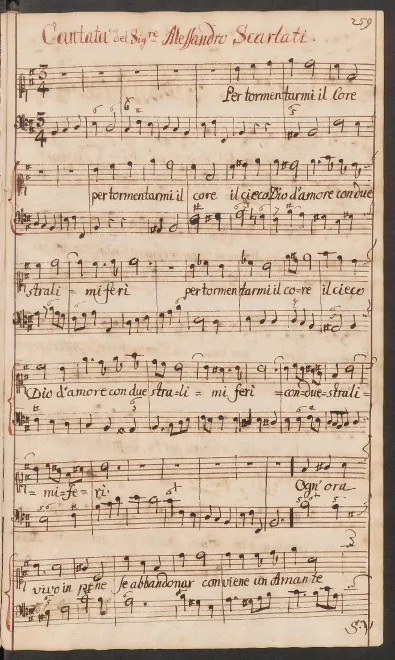 259
Cantata del Sig.re Alessandro Scarlati.
Per tormentarmi il Core
per tormentarmi il core il cieco Dio d'amore con due
strali = mi ferì per tormentarmi il co=re il cieco
Dio d'amore con due stra=li = mi ferì =con=due=strali=
= mi=fe=rì. Ogn' ora
vivo in pene se abbandonar conviene un Amante